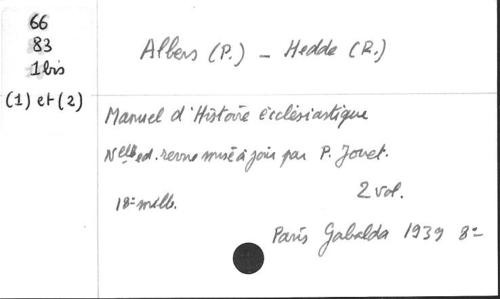 66
83
1 bis
(1) et (2)
Albers (P.) – Hedde (R.)
Manuel d'Histoire ecclésiastique
Nelle ed. revue mise à jour par P. Jouet.
2 vol.
18e mille.
Paris Gabalda 1939 8°